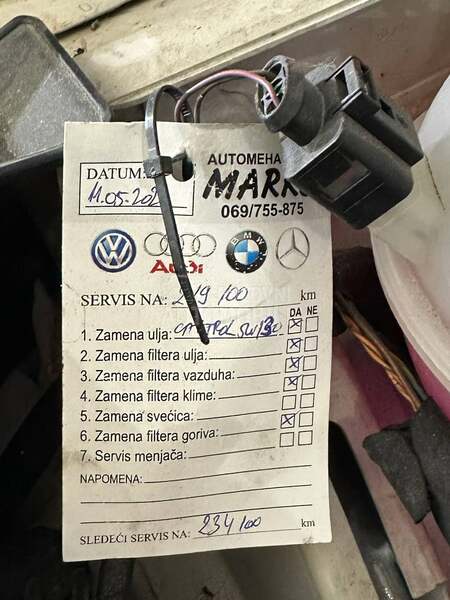 DATUM:
AUTOMEHA
11.05.202
MARK
069/755-875
Audi
BMW
SERVIS NA: 219/00 km
DA NE
1. Zamena ulja: CASTROL 5W/30
2. Zamena filtera ulja:
3. Zamena filtera vazduha:
4. Zamena filtera klime:
5. Zamena svećica:
6. Zamena filtera goriva:
7. Servis menjača:
NAPOMENA:
SLEDEĆI SERVIS NA: 234/00 km